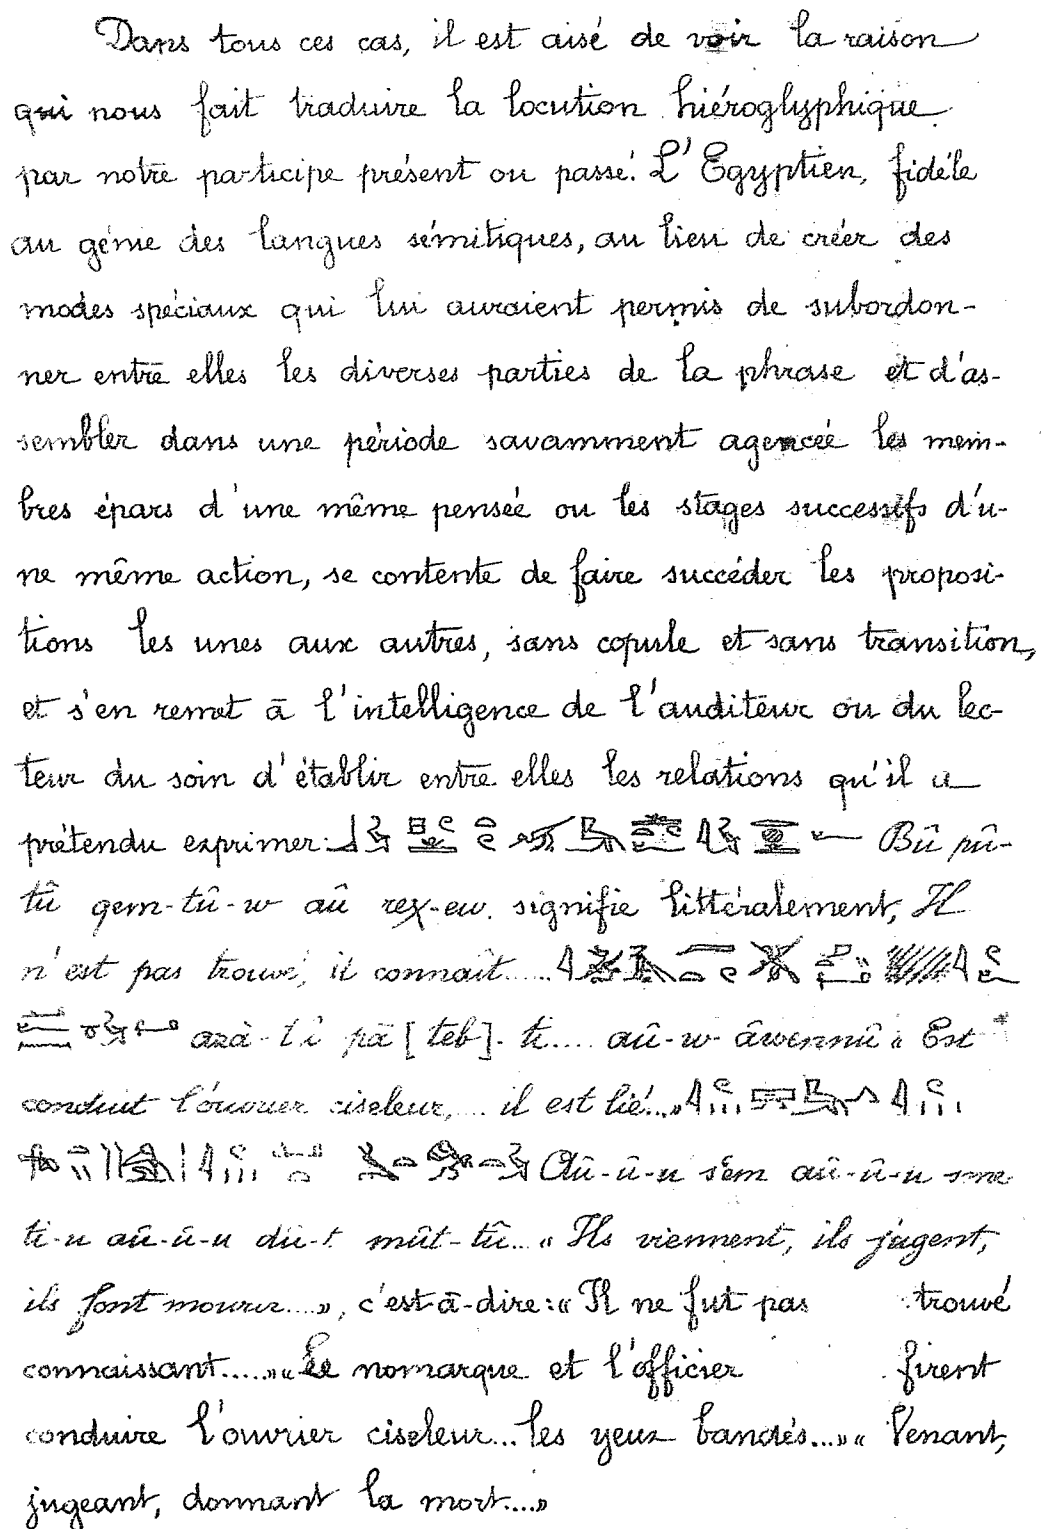 Dans tous ces cas, il est aisé de voir la raison
qui nous fait traduire la locution hiéroglyphique
par notre participe présent ou passé. L'Egyptien, fidèle
au génie des langues sémitiques, au lieu de créer des
modes spéciaux qui lui auraient permis de subordon-
ner entre elles les diverses parties de la phrase et d'as-
sembler dans une période savamment agencée les mem-
bres épars d'une même pensée ou les stages successifs d'u-
ne même action, se contente de faire succéder les proposi-
tions les unes aux autres, sans copule et sans transition,
et s'en remet à l'intelligence de l'auditeur ou du lec-
teur du soin d'établir entre elles les relations qu'il a
prétendu exprimer: Bû pû-
tû qem-tû-w aû reχ-ew. signifie littéralement, Il
n'est pas trouvé, il connaît.....
pā [teb]-ti.... aû-w- « Est
conduit l'ouvrier ciseleur,... il est lié...»
Aû-û-u s'em aû-û-u
ti-u aû-û-u dû-t mût-tû... « Ils viennent, ils jugent,
ils font mourir....», c'est-à-dire: « Il ne fut pas trouvé
connaissant.....» « Le nomarque et l'officier firent
conduire l'ouvrier ciseleur... les yeux bandés...» « Venant,
jugeant, donnant la mort....»